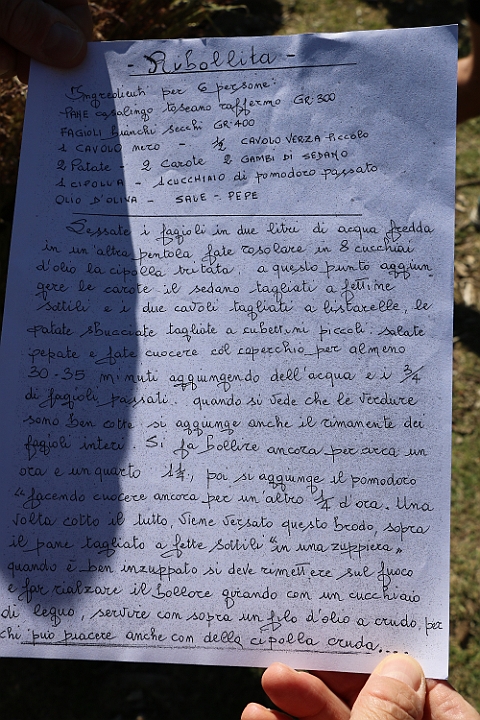 - Ribollita -
Ingredienti per 6 persone:
PANE casalingo toscano raffermo GR: 300
FAGIOLI bianchi secchi GR: 400
1 CAVOLO nero - ½ CAVOLO VERZA Piccolo
2 Patate - 2 Carote 2 GAMBI DI SEDANO
1 CIPOLLA - 1 CUCCHIAIO di pomodoro passato
OLIO D'OLIVA - SALE - PEPE
Lessate i fagioli in due litri di acqua fredda
in un'altra pentola fate rosolare in 8 cucchiai
d'olio la cipolla tritata. a questo punto aggiun
gere le carote il sedano tagliati a fettine
sottili e i due cavoli tagliati a listarelle, le
patate sbucciate tagliate a cubettini piccoli. salate
pepate e fate cuocere col coperchio per almeno
30-35 minuti aggiungendo dell'acqua e i ¾
di fagioli passati. quando si vede che le verdure
sono ben cotte. si aggiunge anche il rimanente dei
fagioli interi. Si fa bollire ancora per circa un
ora e un quarto 1¼, poi si aggiunge il pomodoro
"facendo cuocere ancora per un'altro ¼ d'ora. Una
volta cotto il tutto, viene versato questo brodo, sopra
il pane tagliato a fette sottili "in una zuppiera"
quando è ben inzuppato si deve rimettere sul fuoco
e far rialzare il bollore girando con un cucchiaio
di legno, servire con sopra un filo d'olio a crudo, per
chi può piacere anche con della cipolla cruda....